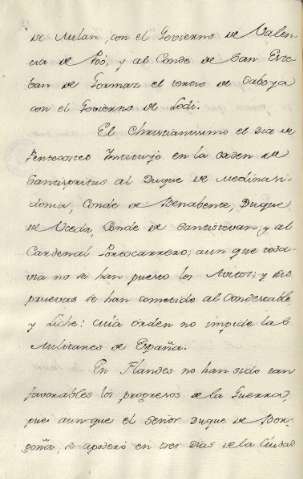 de Milan, con el Govierno de Valen
cia de Pò, y al Conde de San Este
ban de Gormaz el tercio de Saboya
con el Govierno de Lodi.
El Christianisimo el dia de
Pentecostes Introdujo en la orden de
Santispiritus al Duque de Medinasi
donia, Conde de Benabente, Duque
de Uzeda, Conde de Santistevan, y al
Cardenal Portocarrero; aun que toda
via no se han puesto los Avitos; y las
pruevas se han cometido al Condestable
y Liche: cuia orden no impide las
Militares de España.
En Flandes no han sido tan
favorables los progresos de la Guerra,
pues aunque el Señor Duque de Bor
goña, se apoderò en tres dias de la Ciudad